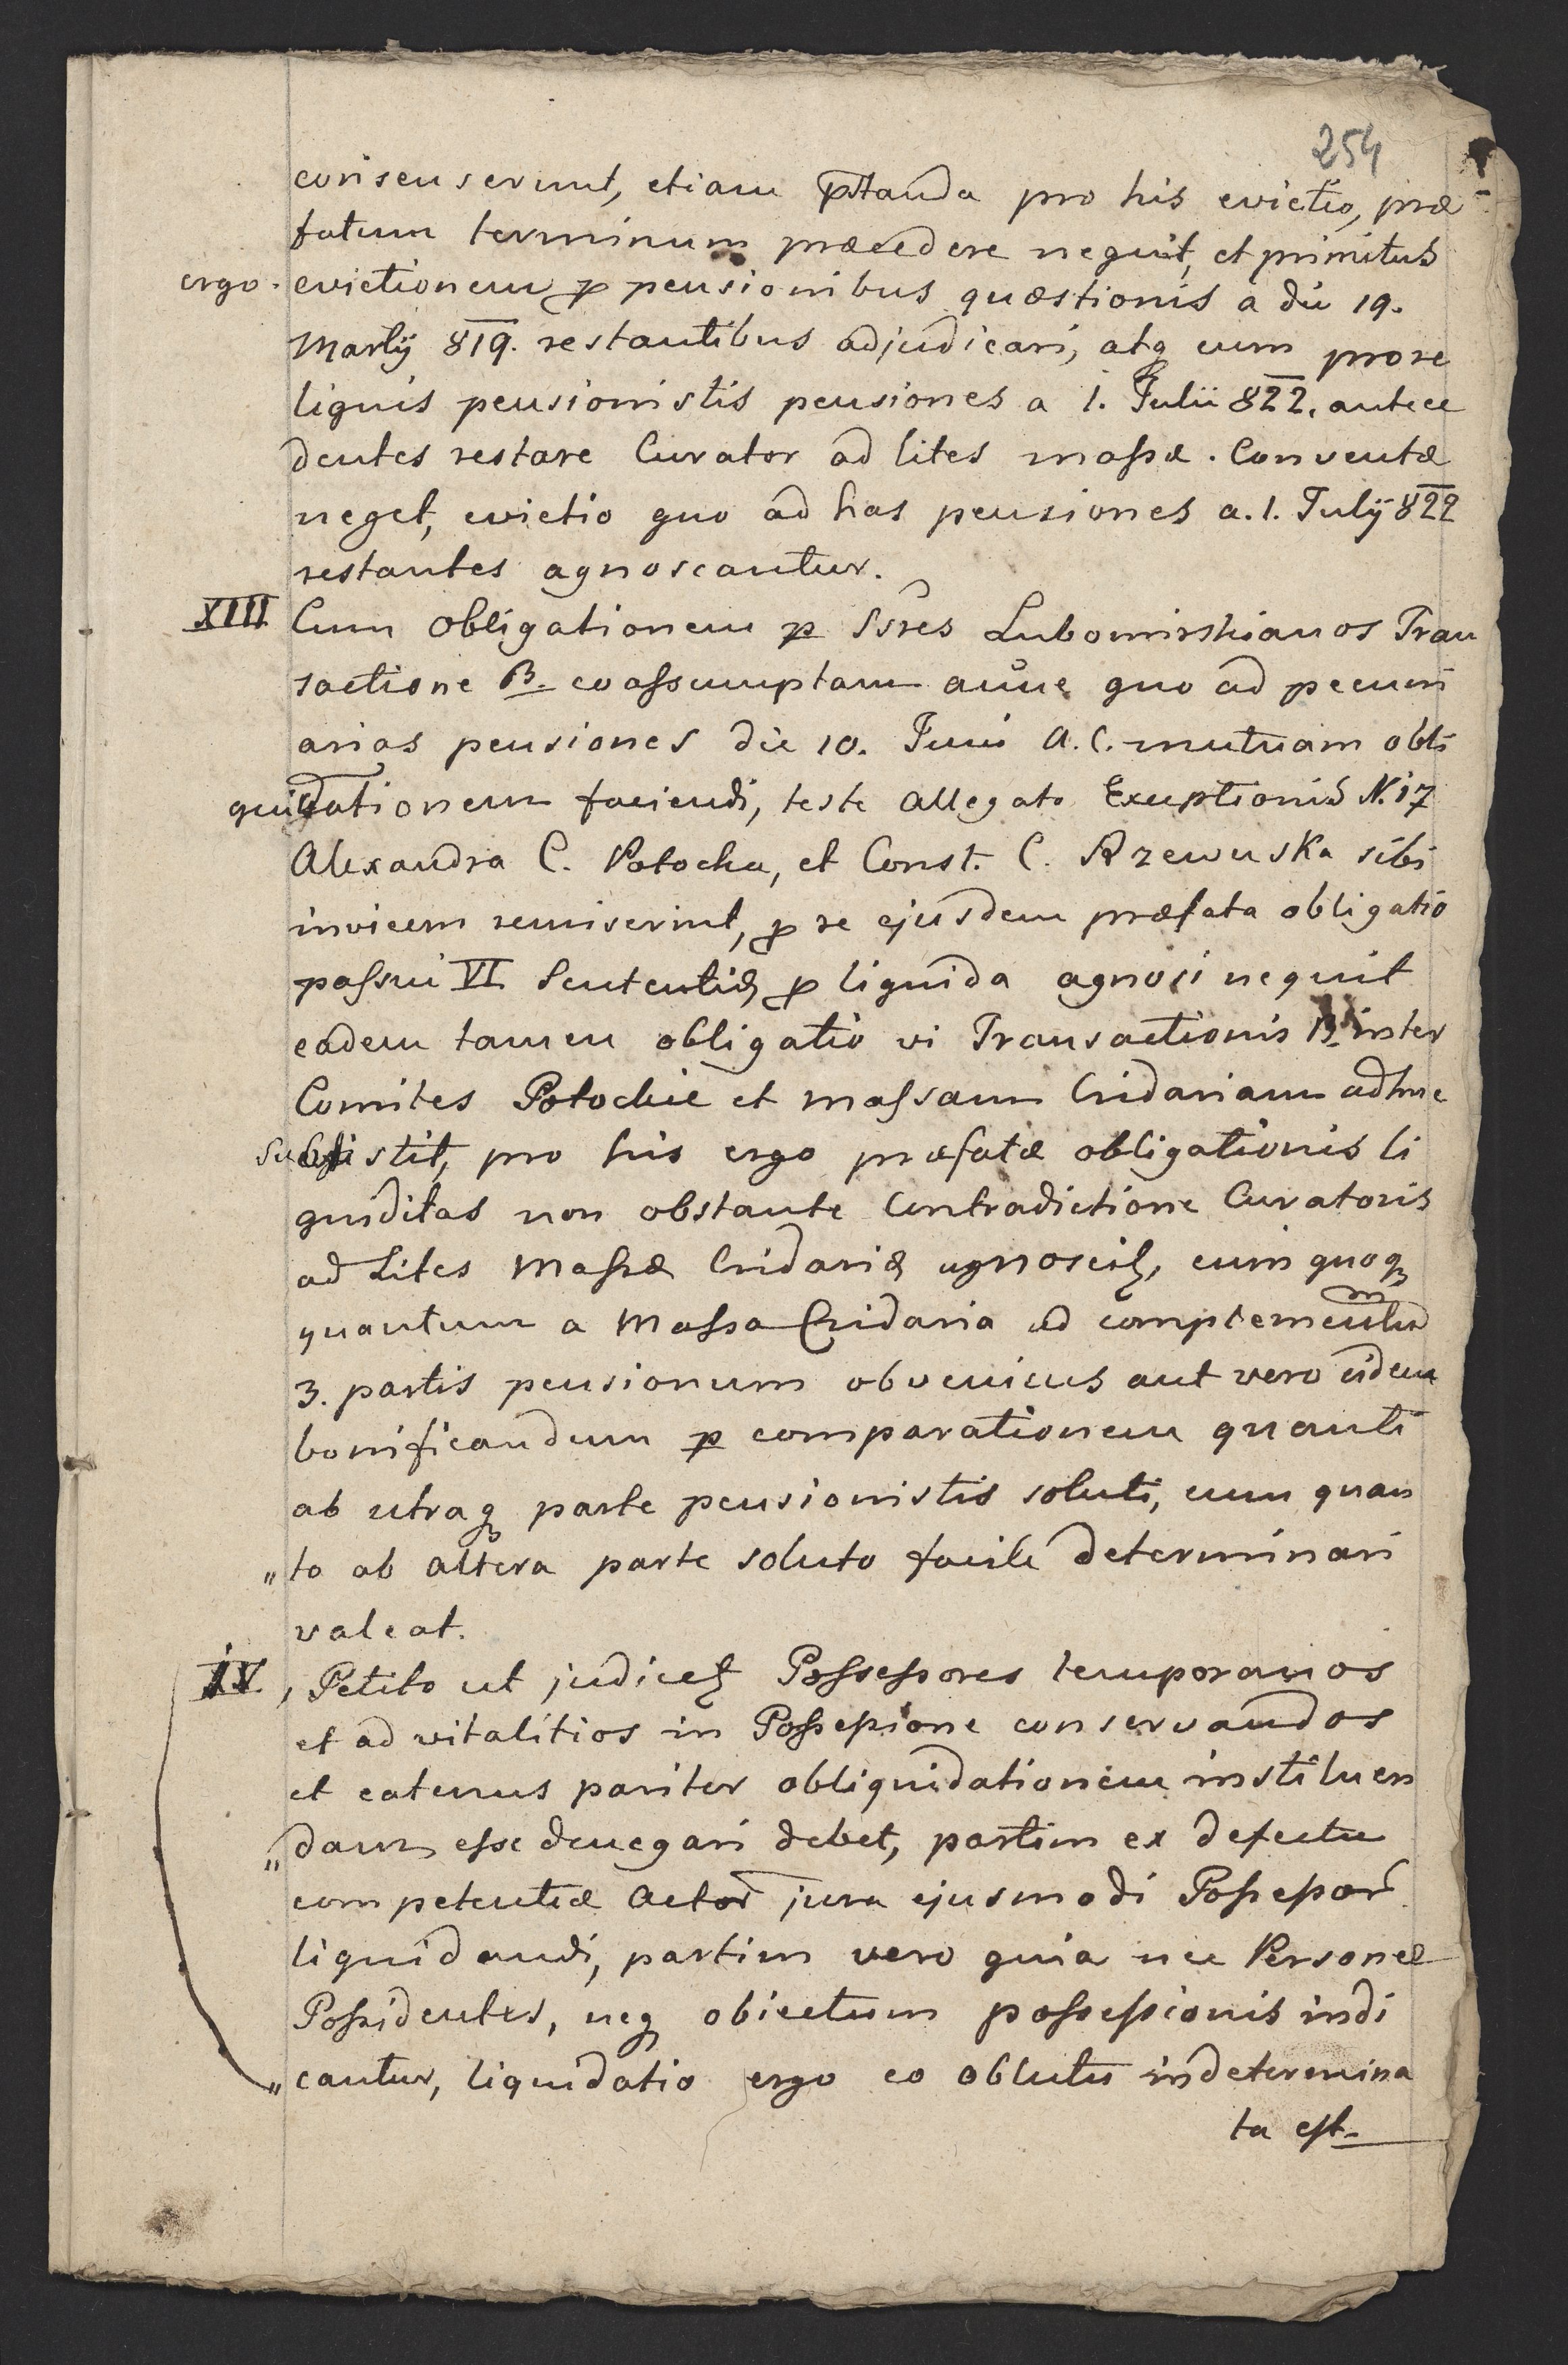 254
consenserunt, etiam pstanda pro his evictio, præ
fatum terminum præcedere nequit, et primitus
ergo. evictionem p pensionibus quæstionis a die 19.
Martij 819. restantibus adjudicari, atq cum pro re
liquis pensionistis pensiones a 1. Julii 822. antece
dentes restare Curator ad lites massæ. Conventæ
neget, evictio quo ad has pensiones a. 1. Julij 822
restantes agnoscantur.
XIII Cum obligationem p Ssres Lubomirskianos Tran
sactione B. coassumptam quo ad pecuni
arias pensiones die 10. Junii A. C. mutuam obli
quidationem faciendi, teste Allegato Exceptionis N. 17
Alexandra C. Potocka, et Const. C. Rzewuska sibi
invicem remiserint, p se ejusdem præfata obligatio
passui VI Sententiæ p liquida agnosci nequit
eadem tamen obligatio vi Transactionis B. inter
Comites Potockie et massam Cridariam adhuc
subsistit, pro his ergo præfatæ obligationis li
quiditas non obstante Contradictione Curatoris
ad Lites Massæ Cridariæ agnoscit, cum quoq
quantum a Massa Cridaria ad complementum
3. partis pensionum obveniens aut vero eidem
bonificandum p comparationem quanti
ab utraq parte pensionistis soluti, cum quan
"to ab altera parte soluto facile determinari
valeat.
IV, Petito ut judicet Possessores temporaneos
et ad vitalitios in Possessione conservandos
et eatenus pariter obliquidationem instituen
"dam esse denegari debet, partim ex defectu
competentiæ Actor jura ejusmodi Possessor
liquidandi, partim vero quia nec Personæ
Possidentes, neq obiectum possessionis indi
"cantur, liquidatio ergo eo obtutu indetermina
ta est.